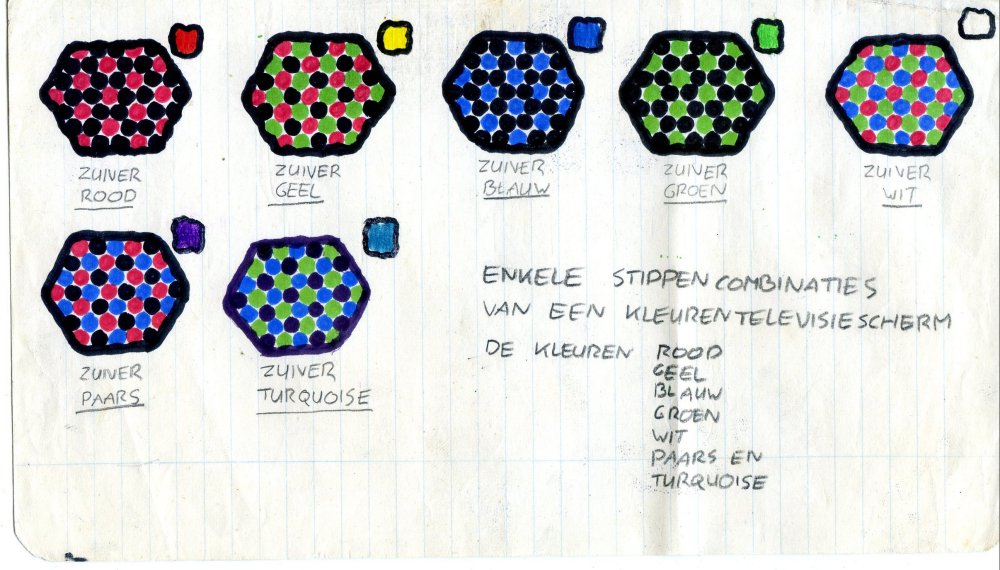 ZUIVER
ROOD
ZUIVER
GEEL
ZUIVER
BLAUW
ZUIVER
GROEN
ZUIVER
WIT
ZUIVER
PAARS
ZUIVER
TURQUOISE
ENKELE STIPPENCOMBINATIES
VAN EEN KLEURENTELEVISIESCHERM
DE KLEUREN ROOD
GEEL
BLAUW
GROEN
WIT
PAARS EN
TURQUOISE